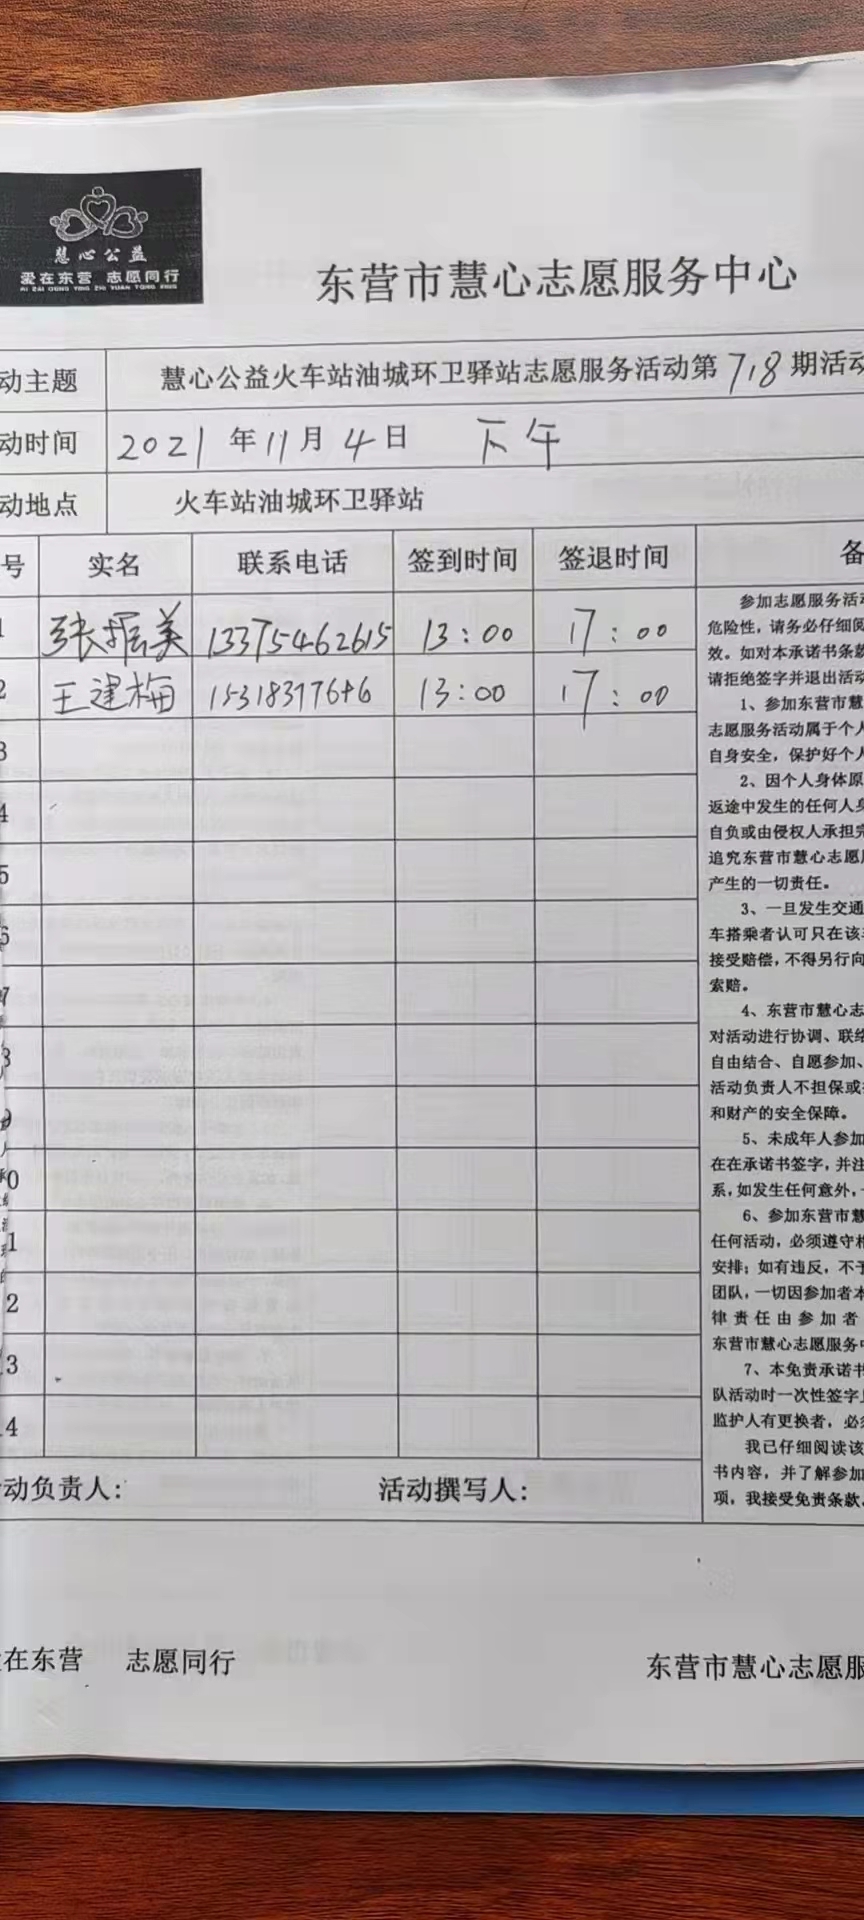 慧心公益
爱在东营 志愿同行
AI ZAI DONG YING ZHI YUAN TONG XING
东营市慧心志愿服务中心
动主题 慧心公益火车站油城环卫驿站志愿服务活动第718期活动
动时间 2021年11月4日 下午
动地点 火车站油城环卫驿站
号 实名 联系电话 签到时间 签退时间 备
1 张振美 13375462615 13:00 17:00
2 王建梅 13:00 17:00
3
4
5
6
7
8
9
0
1
2
3
4
参加志愿服务活动
危险性，请务必仔细阅
效。如对本承诺书条款
请拒绝签字并退出活动
1、参加东营市慧
志愿服务活动属于个人
自身安全，保护好个人
2、因个人身体原
返途中发生的任何人身
自负或由侵权人承担完
追究东营市慧心志愿服
产生的一切责任。
3、一旦发生交通
车搭乘者认可只在该车
接受赔偿，不得另行向
索赔。
4、东营市慧心志
对活动进行协调、联络
自由结合、自愿参加、
活动负责人不担保或
和财产的安全保障。
5、未成年人参加
在在承诺书签字，并注
系，如发生任何意外，
6、参加东营市慧
任何活动，必须遵守相
安排；如有违反，不予
团队，一切因参加者本
律责任由参加者
东营市慧心志愿服务中
7、本免责承诺书
队活动时一次性签字
监护人有更换者，必须
我已仔细阅读该
书内容，并了解参加
项，我接受免责条款。
动负责人： 活动撰写人：
在东营 志愿同行 东营市慧心志愿服